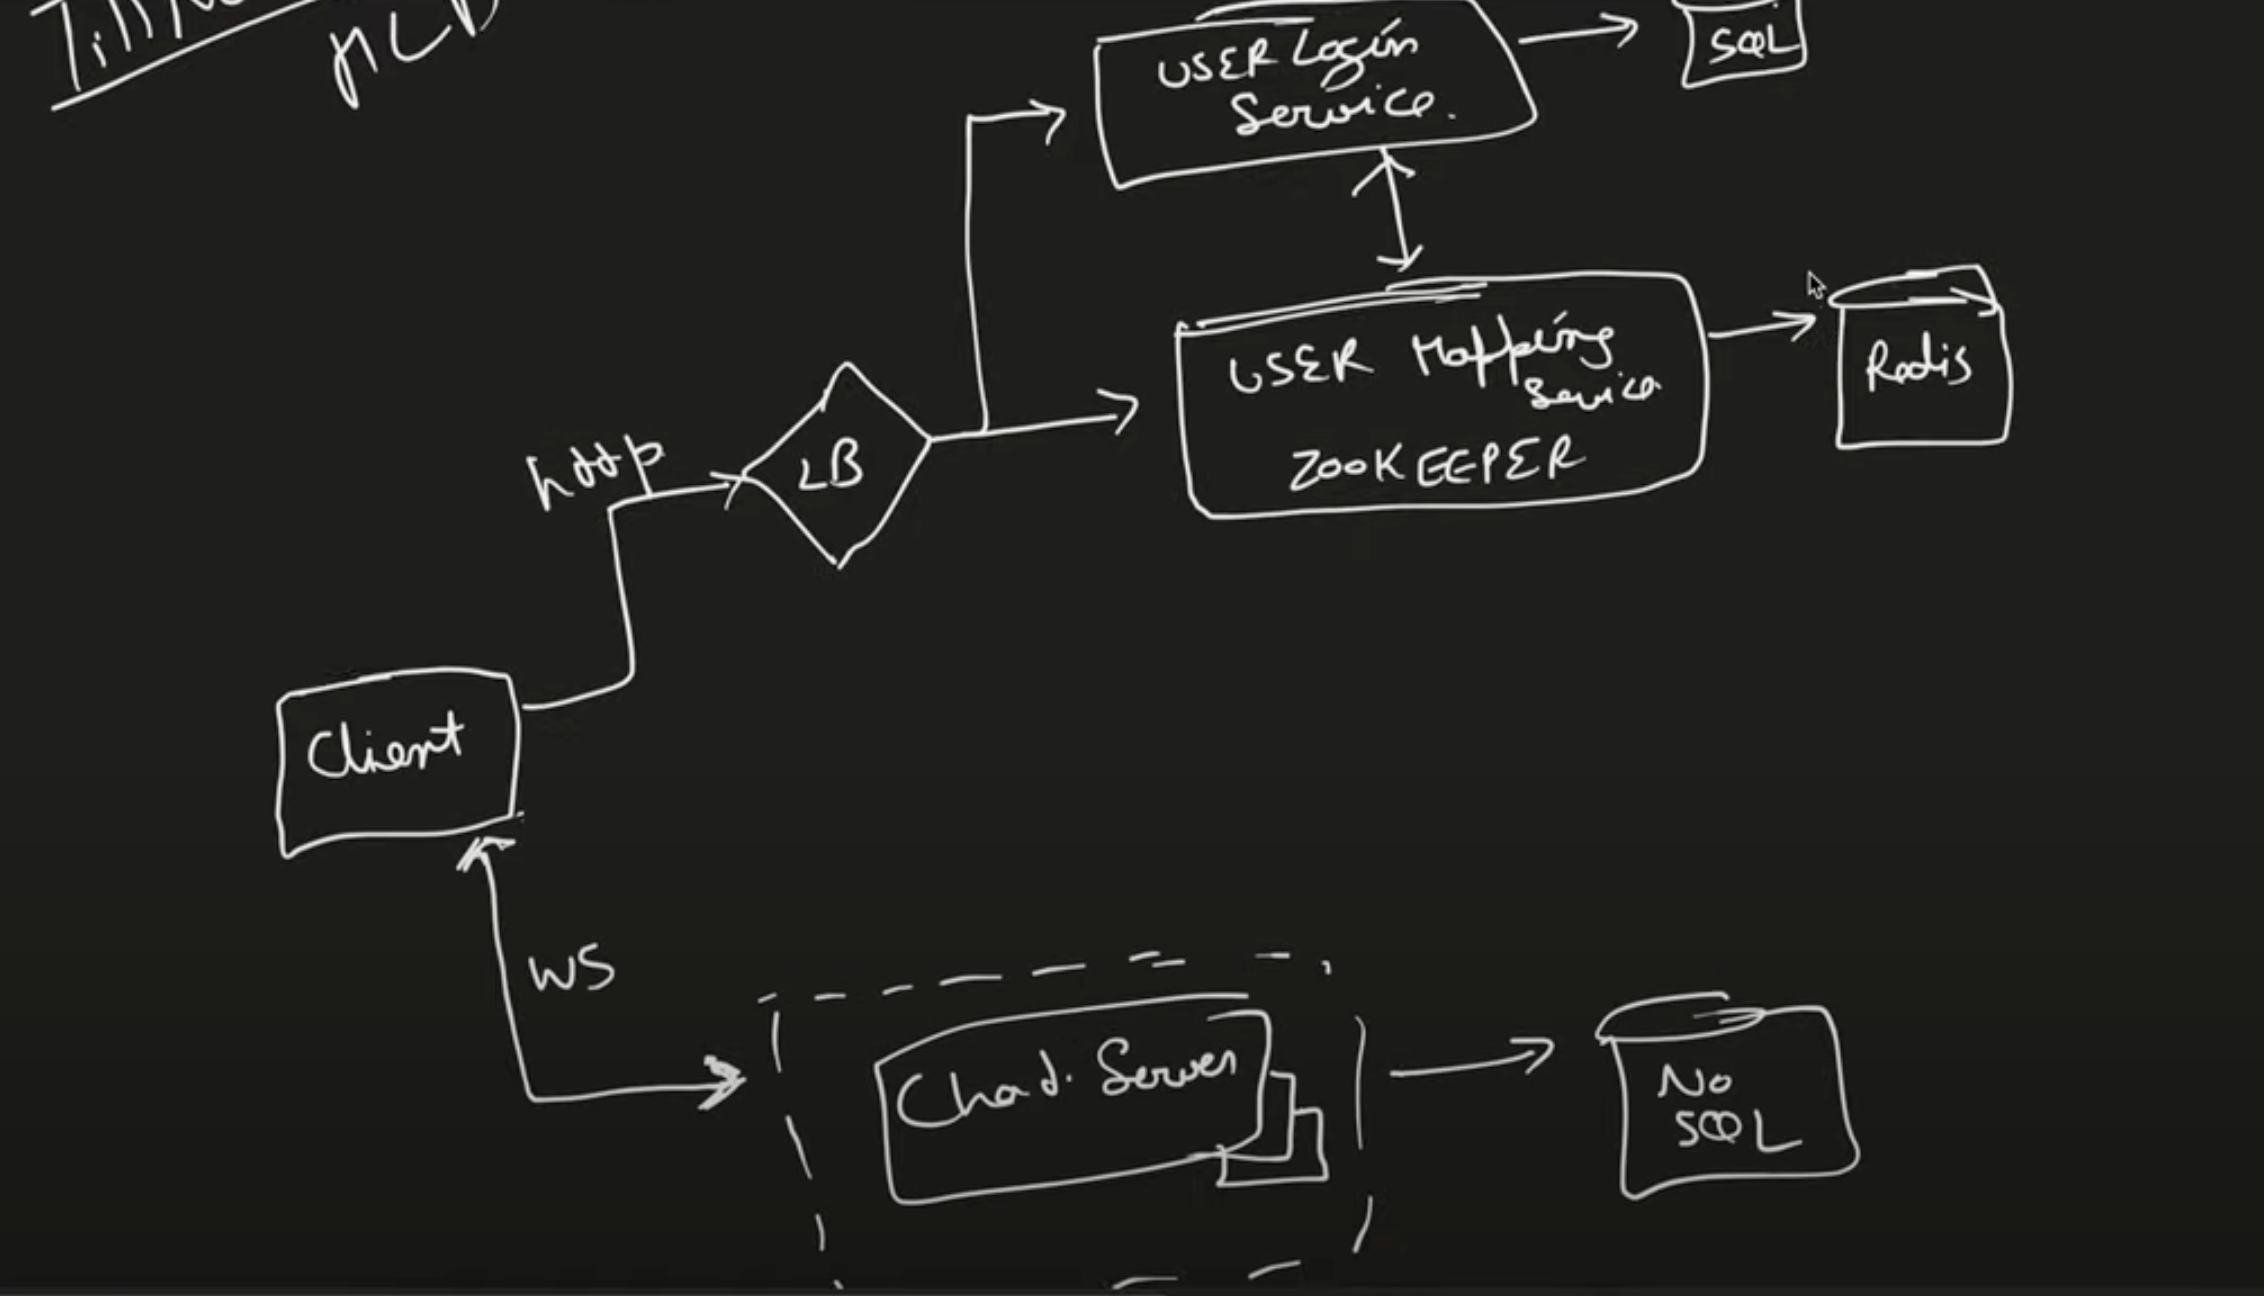 HLD
USER Login
Service.
SQL
USER Mapping
Service
ZOOKEEPER
Redis
http
LB
Client
WS
Chat Server
No
SQL